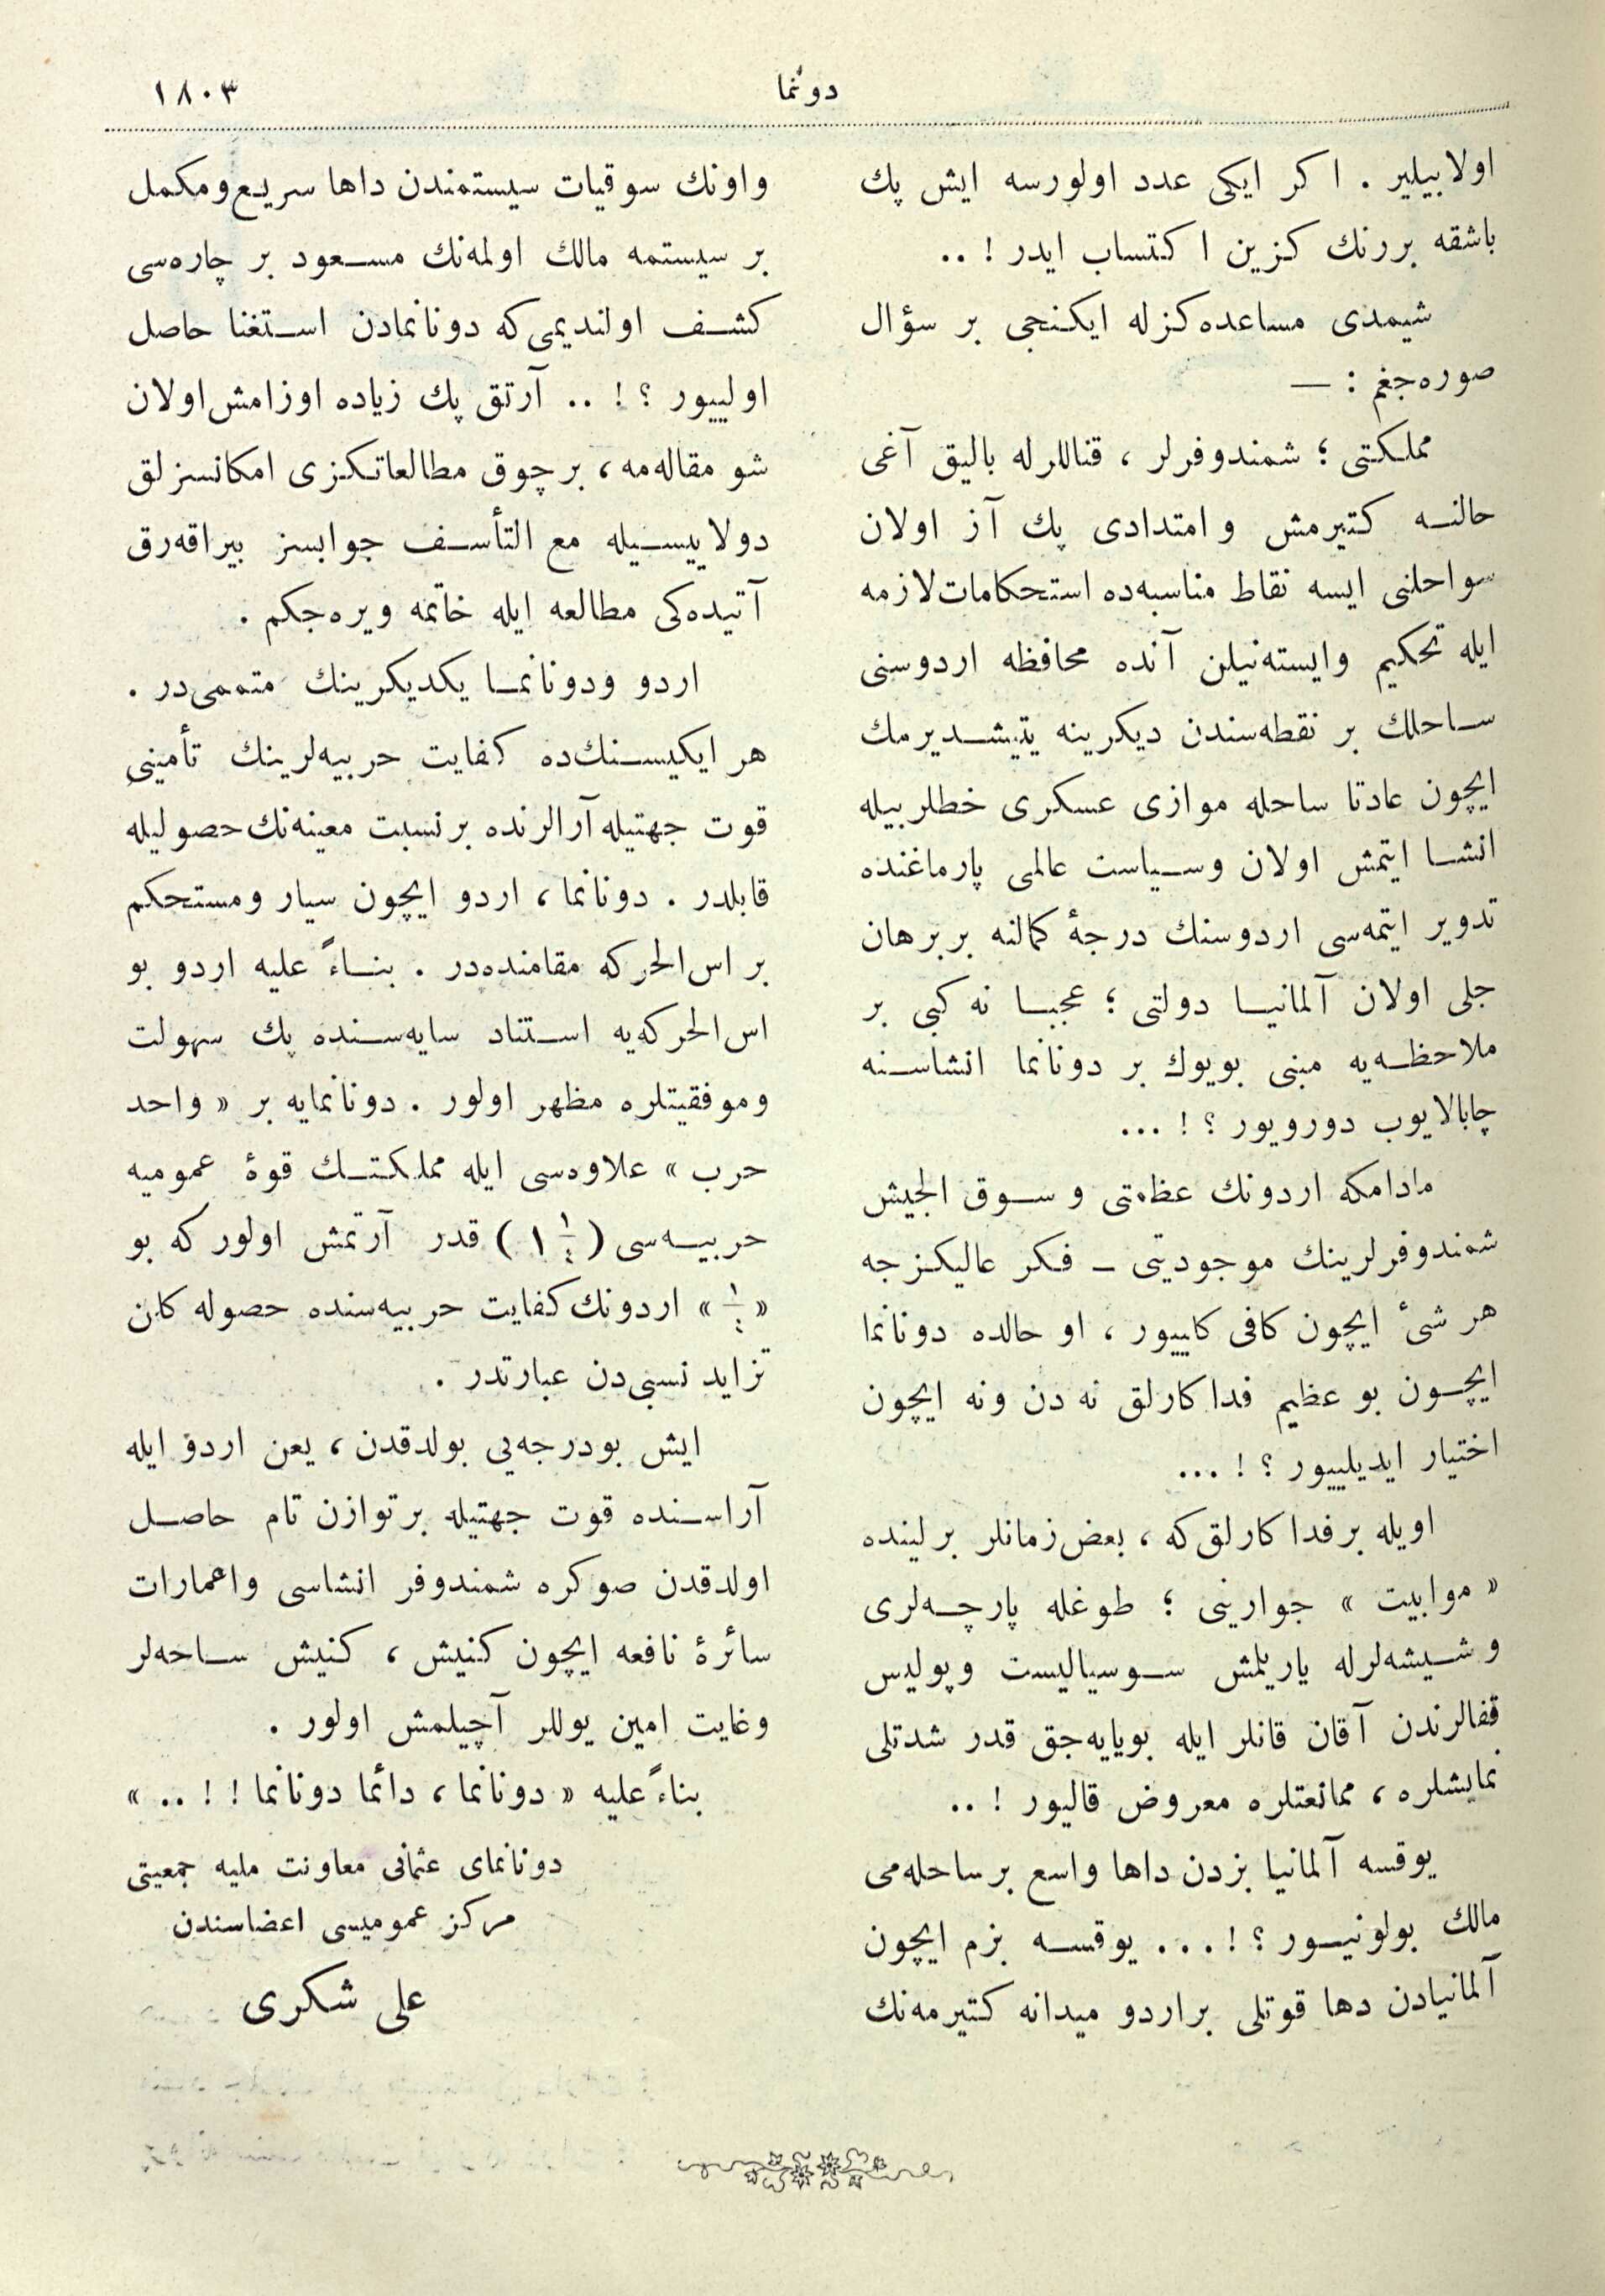 دوننما
١٨٠٣
اولابيلير . اكر ايكى عدد اولورسه ايش پك
باشقه بررنك كزين اكتساب ايدر ! ..
شيمدى مساعده‌كزله ايكنجى بر سؤال
صوره‌جغم : —
مملكتى ؛ شمندوفرلر ، قناللرله باليق آغى
حالنه كتيرمش و امتدادى پك آز اولان
سواحلنى ايسه نقاط مناسبه‌ده استحكامات لازمه
ايله تحكيم وايسته‌نيلن آنده محافظه اردوسنى
ساحلك بر نقطه‌سندن ديكرينه يتيشديرمك
ايچون عادتا ساحله موازى عسكرى خطلربيله
انشا ايتمش اولان وسياست عالمى پارماغنده
تدوير ايتمه‌سى اردوسنك درجهٔ كمالنه بربرهان
جلى اولان آلمانيا دولتى ؛ عجبا نه كبى بر
ملاحظه‌يه مبنى بويوك بر دونانما انشاسنه
چابالايوب دورويور ؟ ! ...
مادامكه اردونك عظمتى و سوق الجيش
شمندوفرلرينك موجوديتى ـ فكر عاليكزجه
هر شئ ايچون كافى كلييور ، او حالده دونانما
ايچون بو عظيم فداكارلق نه دن ونه ايچون
اختيار ايديلييور ؟ ! ...
اويله برفداكارلق‌كه ، بعض زمانلر برلينده
« موابيت » جوارينى ؛ طوغله پارچه‌لرى
و شيشه‌لرله ياريلمش سوسياليست وپوليس
قفالرندن آقان قانلر ايله بويايه‌جق قدر شدتلى
نمايشلره ، ممانعتلره معروض قاليور ! ..
يوقسه آلمانيا بزدن داها واسع برساحله‌مى
مالك بولونيور ؟ ! ... يوقسه بزم ايچون
آلمانيادن دها قوتلى براردو ميدانه كتيرمه‌نك
واونك سوقيات سيستمندن داها سريع ومكمل
بر سيستمه مالك اولمه‌نك مسعود بر چاره‌سى
كشف اولنديمى‌كه دونانمادن استغنا حاصل
اولييور ؟ ! .. آرتق پك زياده اوزامش اولان
شو مقاله‌مه ، برچوق مطالعاتكزى امكانسزلق
دولاييسيله مع التأسف جوابسز بيراقه‌رق
آتيده‌كى مطالعه ايله خاتمه ويره‌جكم .
اردو ودونانما يكديكرينك متممى‌در .
هر ايكيسنك‌ده كفايت حربيه‌لرينك تأمينى
قوت جهتيله آرالرنده برنسبت معينه‌نك حصوليله
قابلدر . دونانما ، اردو ايچون سيار ومستحكم
بر اس‌الحركه مقامنده‌در . بناءً عليه اردو بو
اس‌الحركه‌يه استناد سايه‌سنده پك سهولت
وموفقيتلره مظهر اولور . دونانمايه بر « واحد
حرب » علاوه‌سى ايله مملكتك قوهٔ عموميه
حربيه‌سى ( ١ ١/٤ ) قدر آرتمش اولور كه بو
« ١/٤ » اردونك كفايت حربيه‌سنده حصوله كلن
تزايد نسبى‌دن عبارتدر .
ايش بودرجه‌يى بولدقدن ، يعن اردو ايله
آراسنده قوت جهتيله برتوازن تام حاصل
اولدقدن صوكره شمندوفر انشاسى واعمارات
سائرهٔ نافعه ايچون كنيش ، كنيش ساحه‌لر
وغايت امين يوللر آچيلمش اولور .
بناءً عليه « دونانما ، دائما دونانما ! ! .. »
دونانماى عثمانى معاونت مليه جمعيتى
مركز عموميسى اعضاسندن
على شكرى